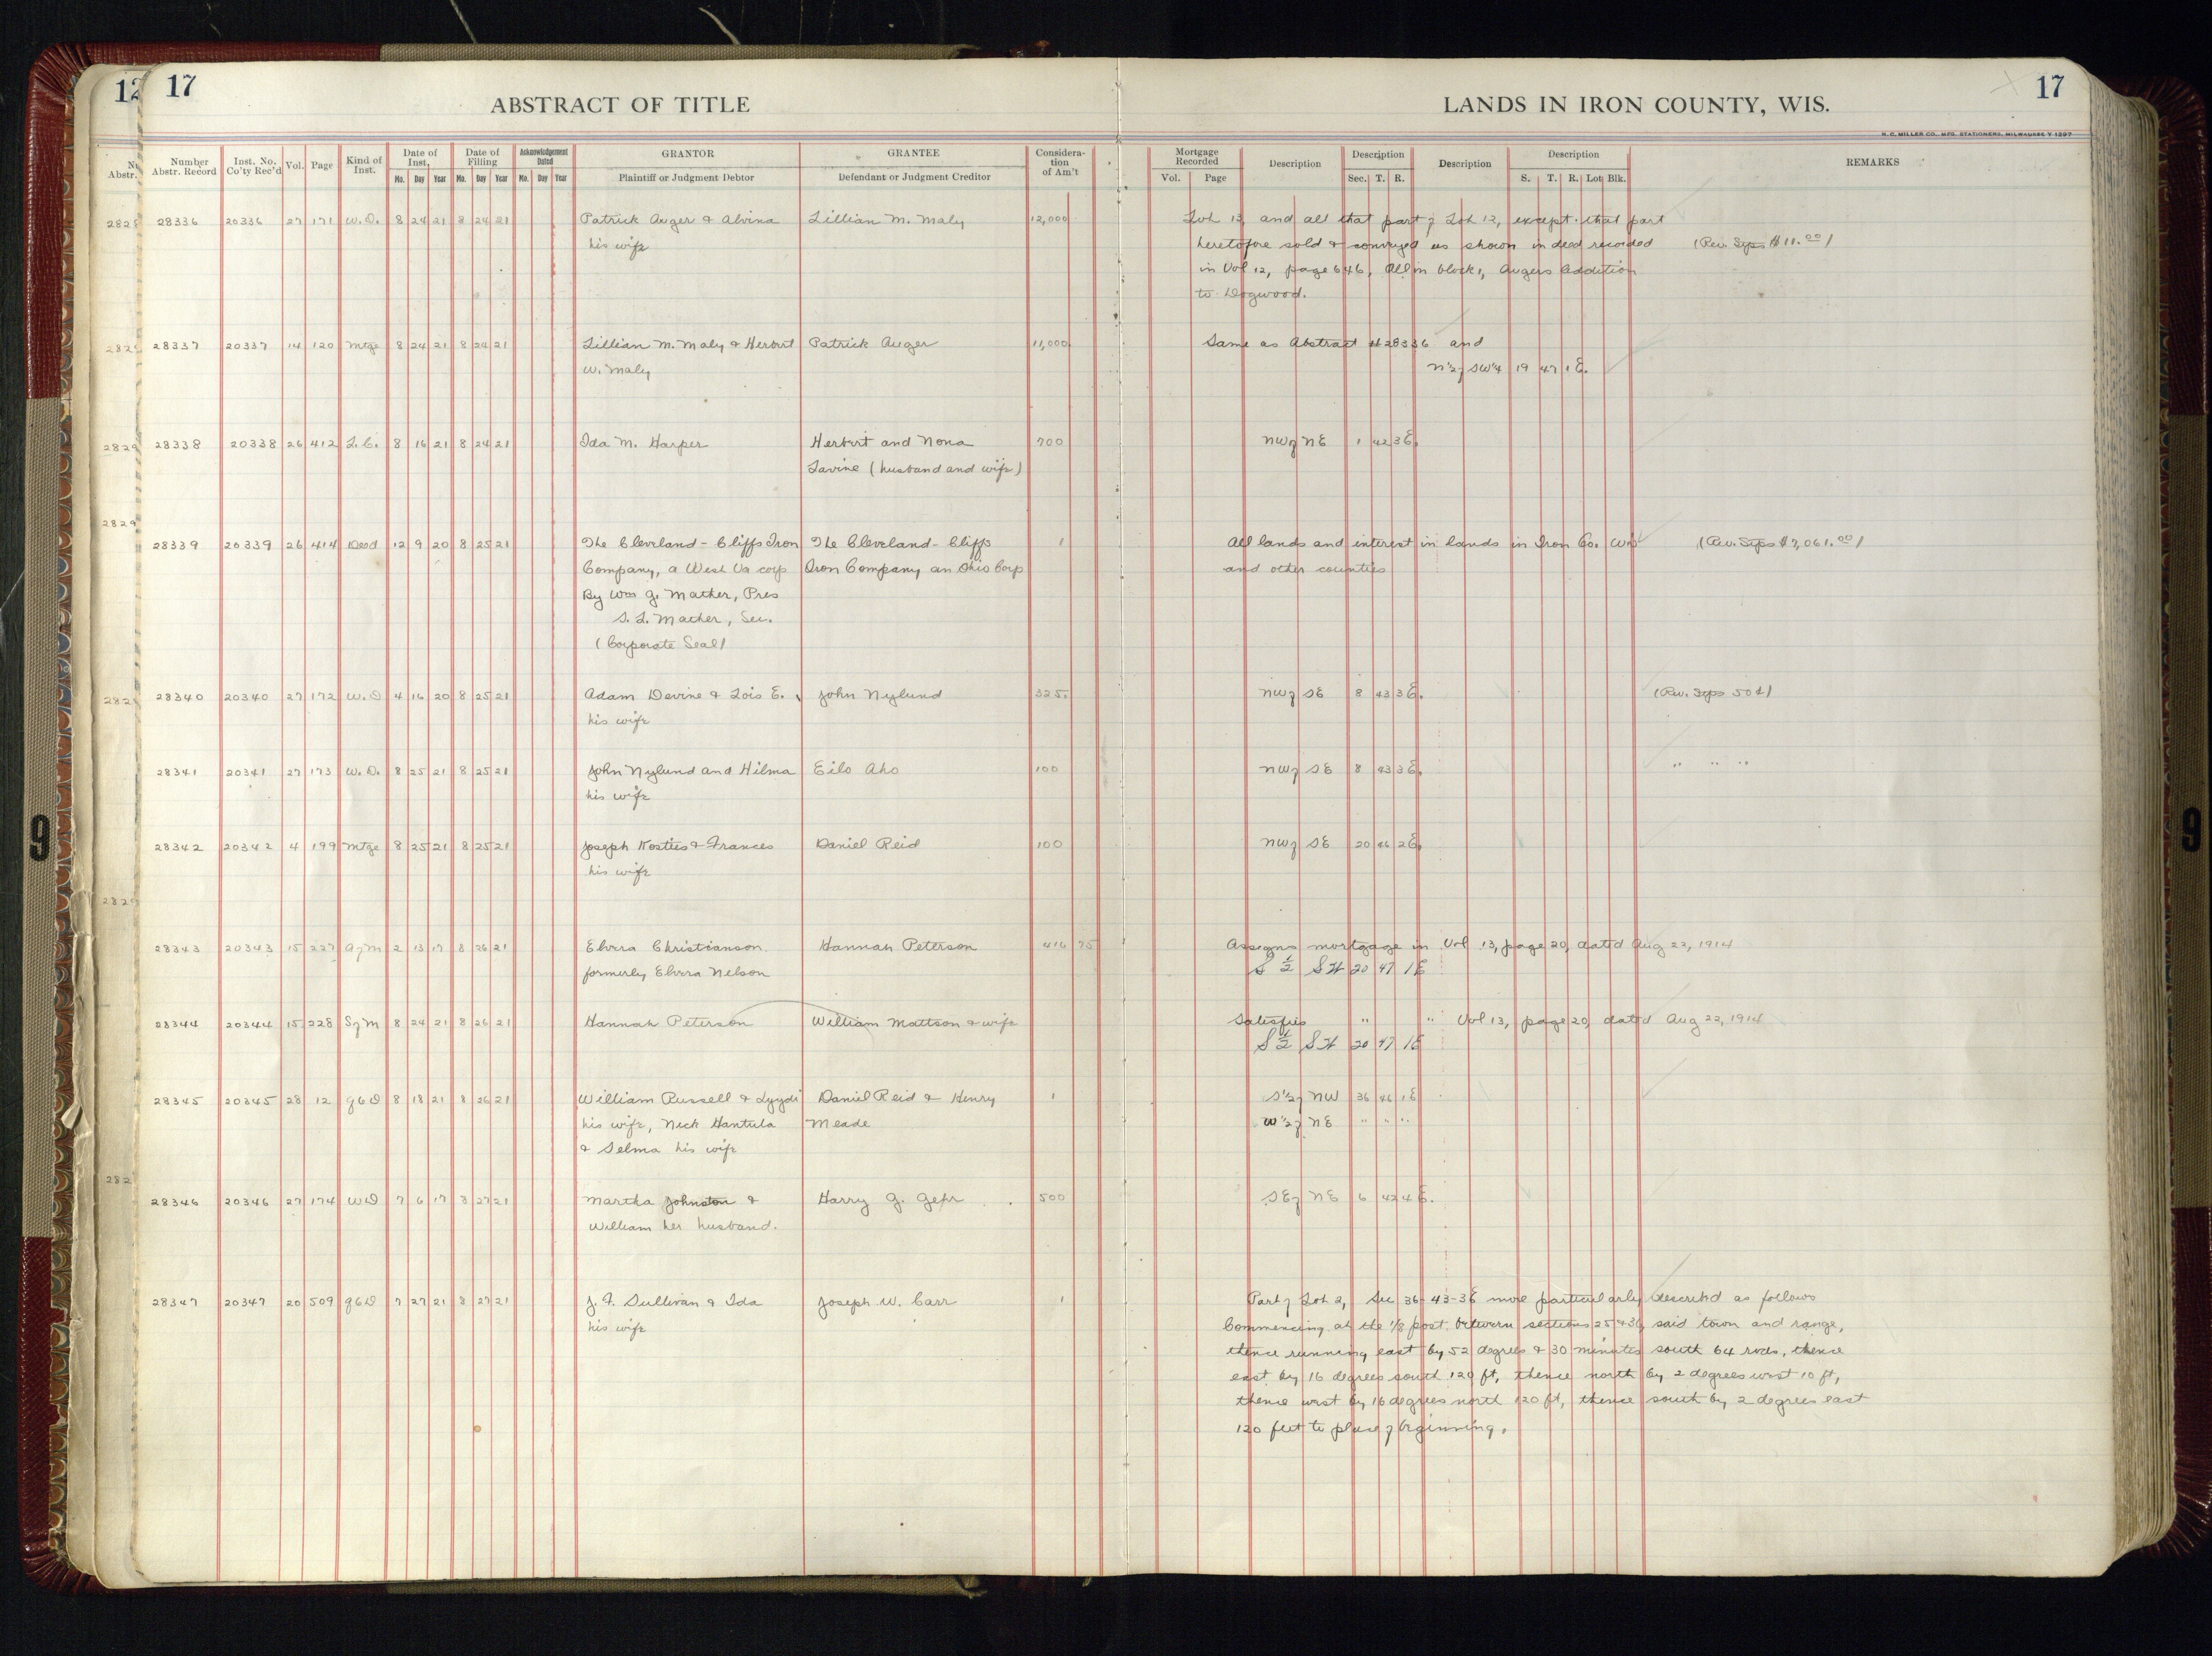 12 17 ABSTRACT OF TITLE LANDS IN IRON COUNTY, WIS. 17
H. C. MILLER CO., MFG. STATIONERS, MILWAUKEE
Number Abstr. Record Inst. No. Co'ty Rec'd Vol. Page Kind of Inst. Date of Inst. Mo. Day Year Date of Filling Mo. Day Year Acknowledgement Dated Mo. Day Year GRANTOR Plaintiff or Judgment Debtor GRANTEE Defendant or Judgment Creditor Considera-tion of Am't Mortgage Recorded Vol. Page Description Description Sec. T. R. Description Description S. T. R. Lot Blk. REMARKS
28336 20336 27 171 W.D. 8 24 21 8 24 21 Patrick Auger & Alvina Lillian M. Maly 12,000 Lot 13, and all that part of Lot 12, except that part
his wife heretofore sold & conveyed as shown in deed recorded (Rev. Stps $11.00)
in Vol 12, page 646, All in block 1, Augers Addition
to Dogwood.
28337 20337 14 120 Mtge 8 24 21 8 24 21 Lillian M. Maly & Herbert Patrick Auger 11,000 Same as Abstract #28336 and
W. Maly N½ of SW¼ 19 47 1 E.
28338 20338 26 412 L.C. 8 16 21 8 24 21 Ida M. Harper Herbert and Nona 700 NW of NE 1 42 3 E.
Lavine (husband and wife)
28339 20339 26 414 Deed 12 9 20 8 25 21 The Cleveland-Cliffs Iron The Cleveland-Cliffs 1 All lands and interest in lands in Iron Co. Wis (Rev. Stps $7,061.00)
Company, a West Va corp Iron Company an Ohio Corp and other counties
By Wm G. Mather, Pres
S. L. Mather, Sec.
(Corporate Seal)
28340 20340 27 172 W.D 4 16 20 8 25 21 Adam Devine & Lois E. John Nylund 325 NW of SE 8 43 3 E. (Rev. Stps 50¢)
his wife
28341 20341 27 173 W.D. 8 25 21 8 25 21 John Nylund and Hilma Eilo Aho 100 NW of SE 8 43 3 E. " " "
his wife
28342 20342 4 199 Mtge 8 25 21 8 25 21 Joseph Kosties & Frances Daniel Reid 100 NW of SE 20 46 2 E.
his wife
28343 20343 15 227 A of M 2 13 17 8 26 21 Elvira Christianson Hannah Peterson 416 75 Assigns mortgage in Vol 13, page 20, dated Aug 22, 1914
formerly Elvira Nelson S ½ SW 20 47 1E
28344 20344 15 228 S of M 8 24 21 8 26 21 Hannah Peterson William Mattson & wife Satisfies " " Vol 13, page 20, dated Aug 22, 1914
S ½ SW 20 47 1E
28345 20345 28 12 QCD 8 18 21 8 26 21 William Russell & Lyydi Daniel Reid & Henry 1 S½ of NW 36 46 1 E
his wife, Nick Hantula Meade W½ of NE " " "
& Selma his wife
28346 20346 27 174 WD 7 6 17 8 27 21 Martha Johnston & Harry G. Gehr 500 SE of NE 6 42 4 E.
William her husband.
28347 20347 20 509 QCD 7 27 21 8 27 21 J. F. Sullivan & Ida Joseph W. Carr 1 Part of Lot 2, Sec 36-43-3E more particularly described as follows
his wife Commencing at the 1/8 post between sections 25 & 36, said town and range,
thence running east by 52 degrees & 30 minutes south 64 rods, thence
east by 16 degrees south 120 ft, thence north by 2 degrees west 10 ft,
thence west by 16 degrees north 120 ft, thence south by 2 degrees east
120 feet to place of beginning.
9 9